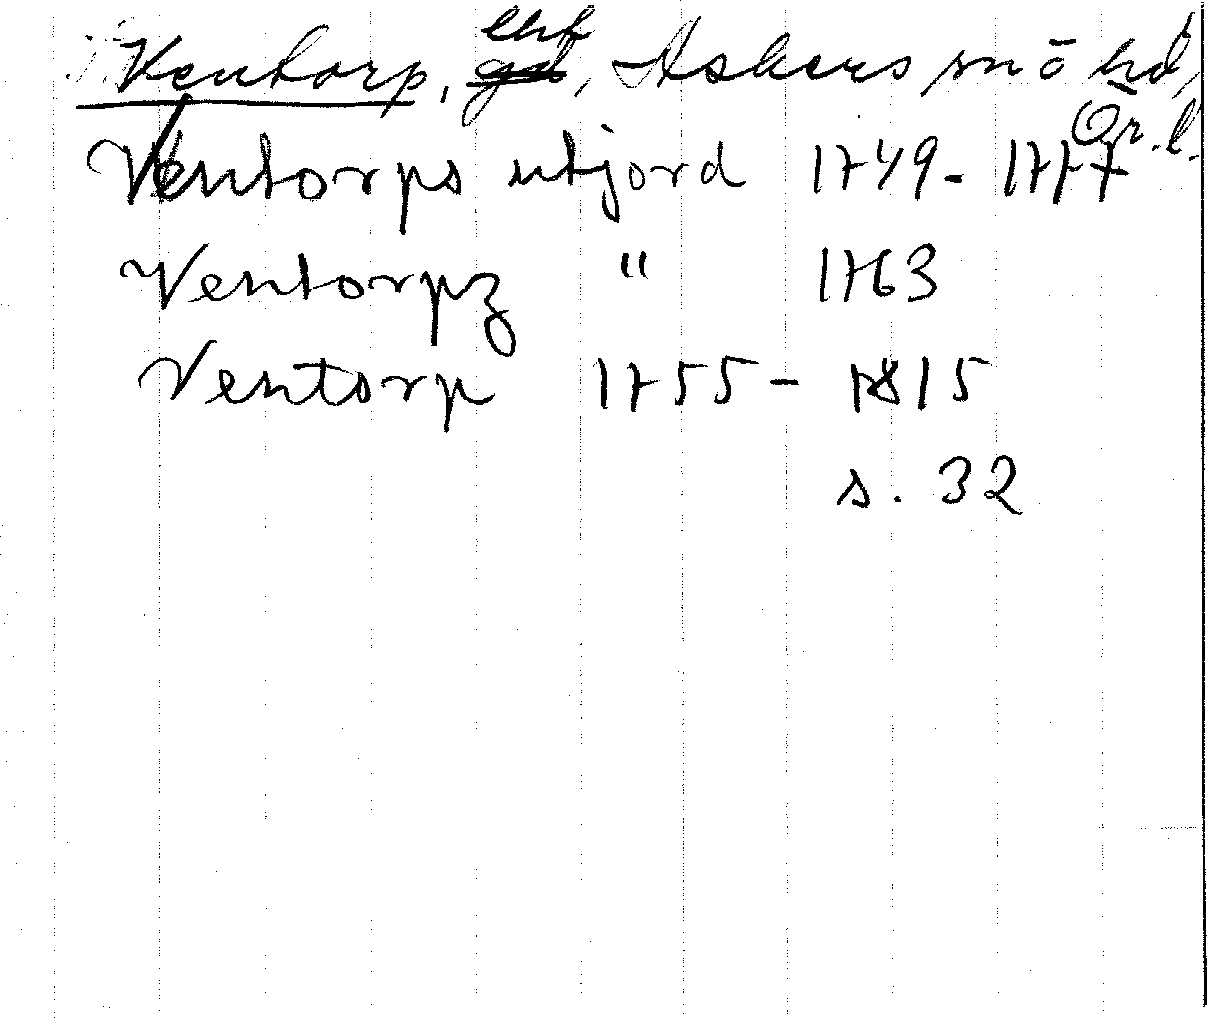 Ventorp, ehf gd, Askers sn ö hd,
Ör. l.
Ventorps utjord 1749 - 1777
Ventorpz " 1763
Ventorp 1755 - 1815
s. 32